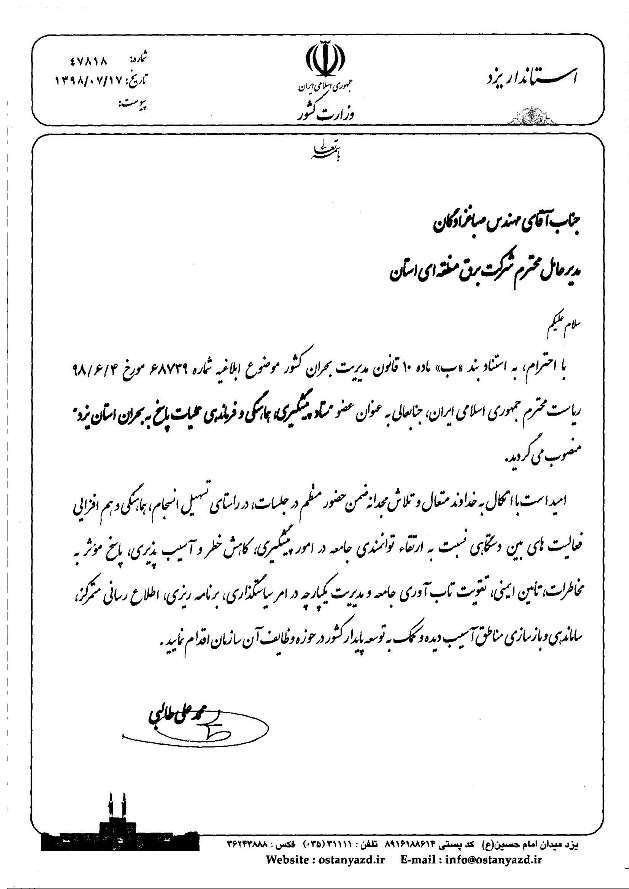 استاندار یزد
جمهوری اسلامی ایران
وزارت کشور
شماره: ۴۷۸۱۸
تاریخ: ۱۳۹۸/۰۷/۱۷
پیوست:
باسمه تعالی
جناب آقای مهندس صباغزادگان
مدیرعامل محترم شرکت برق منطقه ای استان
سلام علیکم
با احترام، به استناد بند «ب» ماده ۱۰ قانون مدیریت بحران کشور موضوع ابلاغیه شماره ۶۸۷۳۹ مورخ ۹۸/۶/۴
ریاست محترم جمهوری اسلامی ایران، جنابعالی به عنوان عضو "ستاد پیشگیری، هماهنگی و فرماندهی عملیات پاسخ به بحران استان یزد"
منصوب می گردید.
امید است با اتکال به خداوند متعال و تلاش مجدانه ضمن حضور منظم در جلسات، در راستای تسهیل انسجام، هماهنگی و هم افزایی
فعالیت های بین دستگاهی نسبت به ارتقاء توانمندی جامعه در امور پیشگیری، کاهش خطر و آسیب پذیری، پاسخ مؤثر به
مخاطرات، تأمین ایمنی، تقویت تاب آوری جامعه و مدیریت یکپارچه در امر سیاستگذاری، برنامه ریزی، اطلاع رسانی متمرکز،
ساماندهی و بازسازی مناطق آسیب دیده و کمک به توسعه پایدار کشور در حوزه وظایف آن سازمان اقدام نمایید .
محمد علی طالبی
یزد میدان امام حسین(ع) کد پستی ۸۹۱۶۱۸۸۶۱۴ تلفن : ۳۱۱۱۱ (۰۳۵) فکس : ۳۶۲۴۳۸۸۸
Website : ostanyazd.ir E-mail : info@ostanyazd.ir